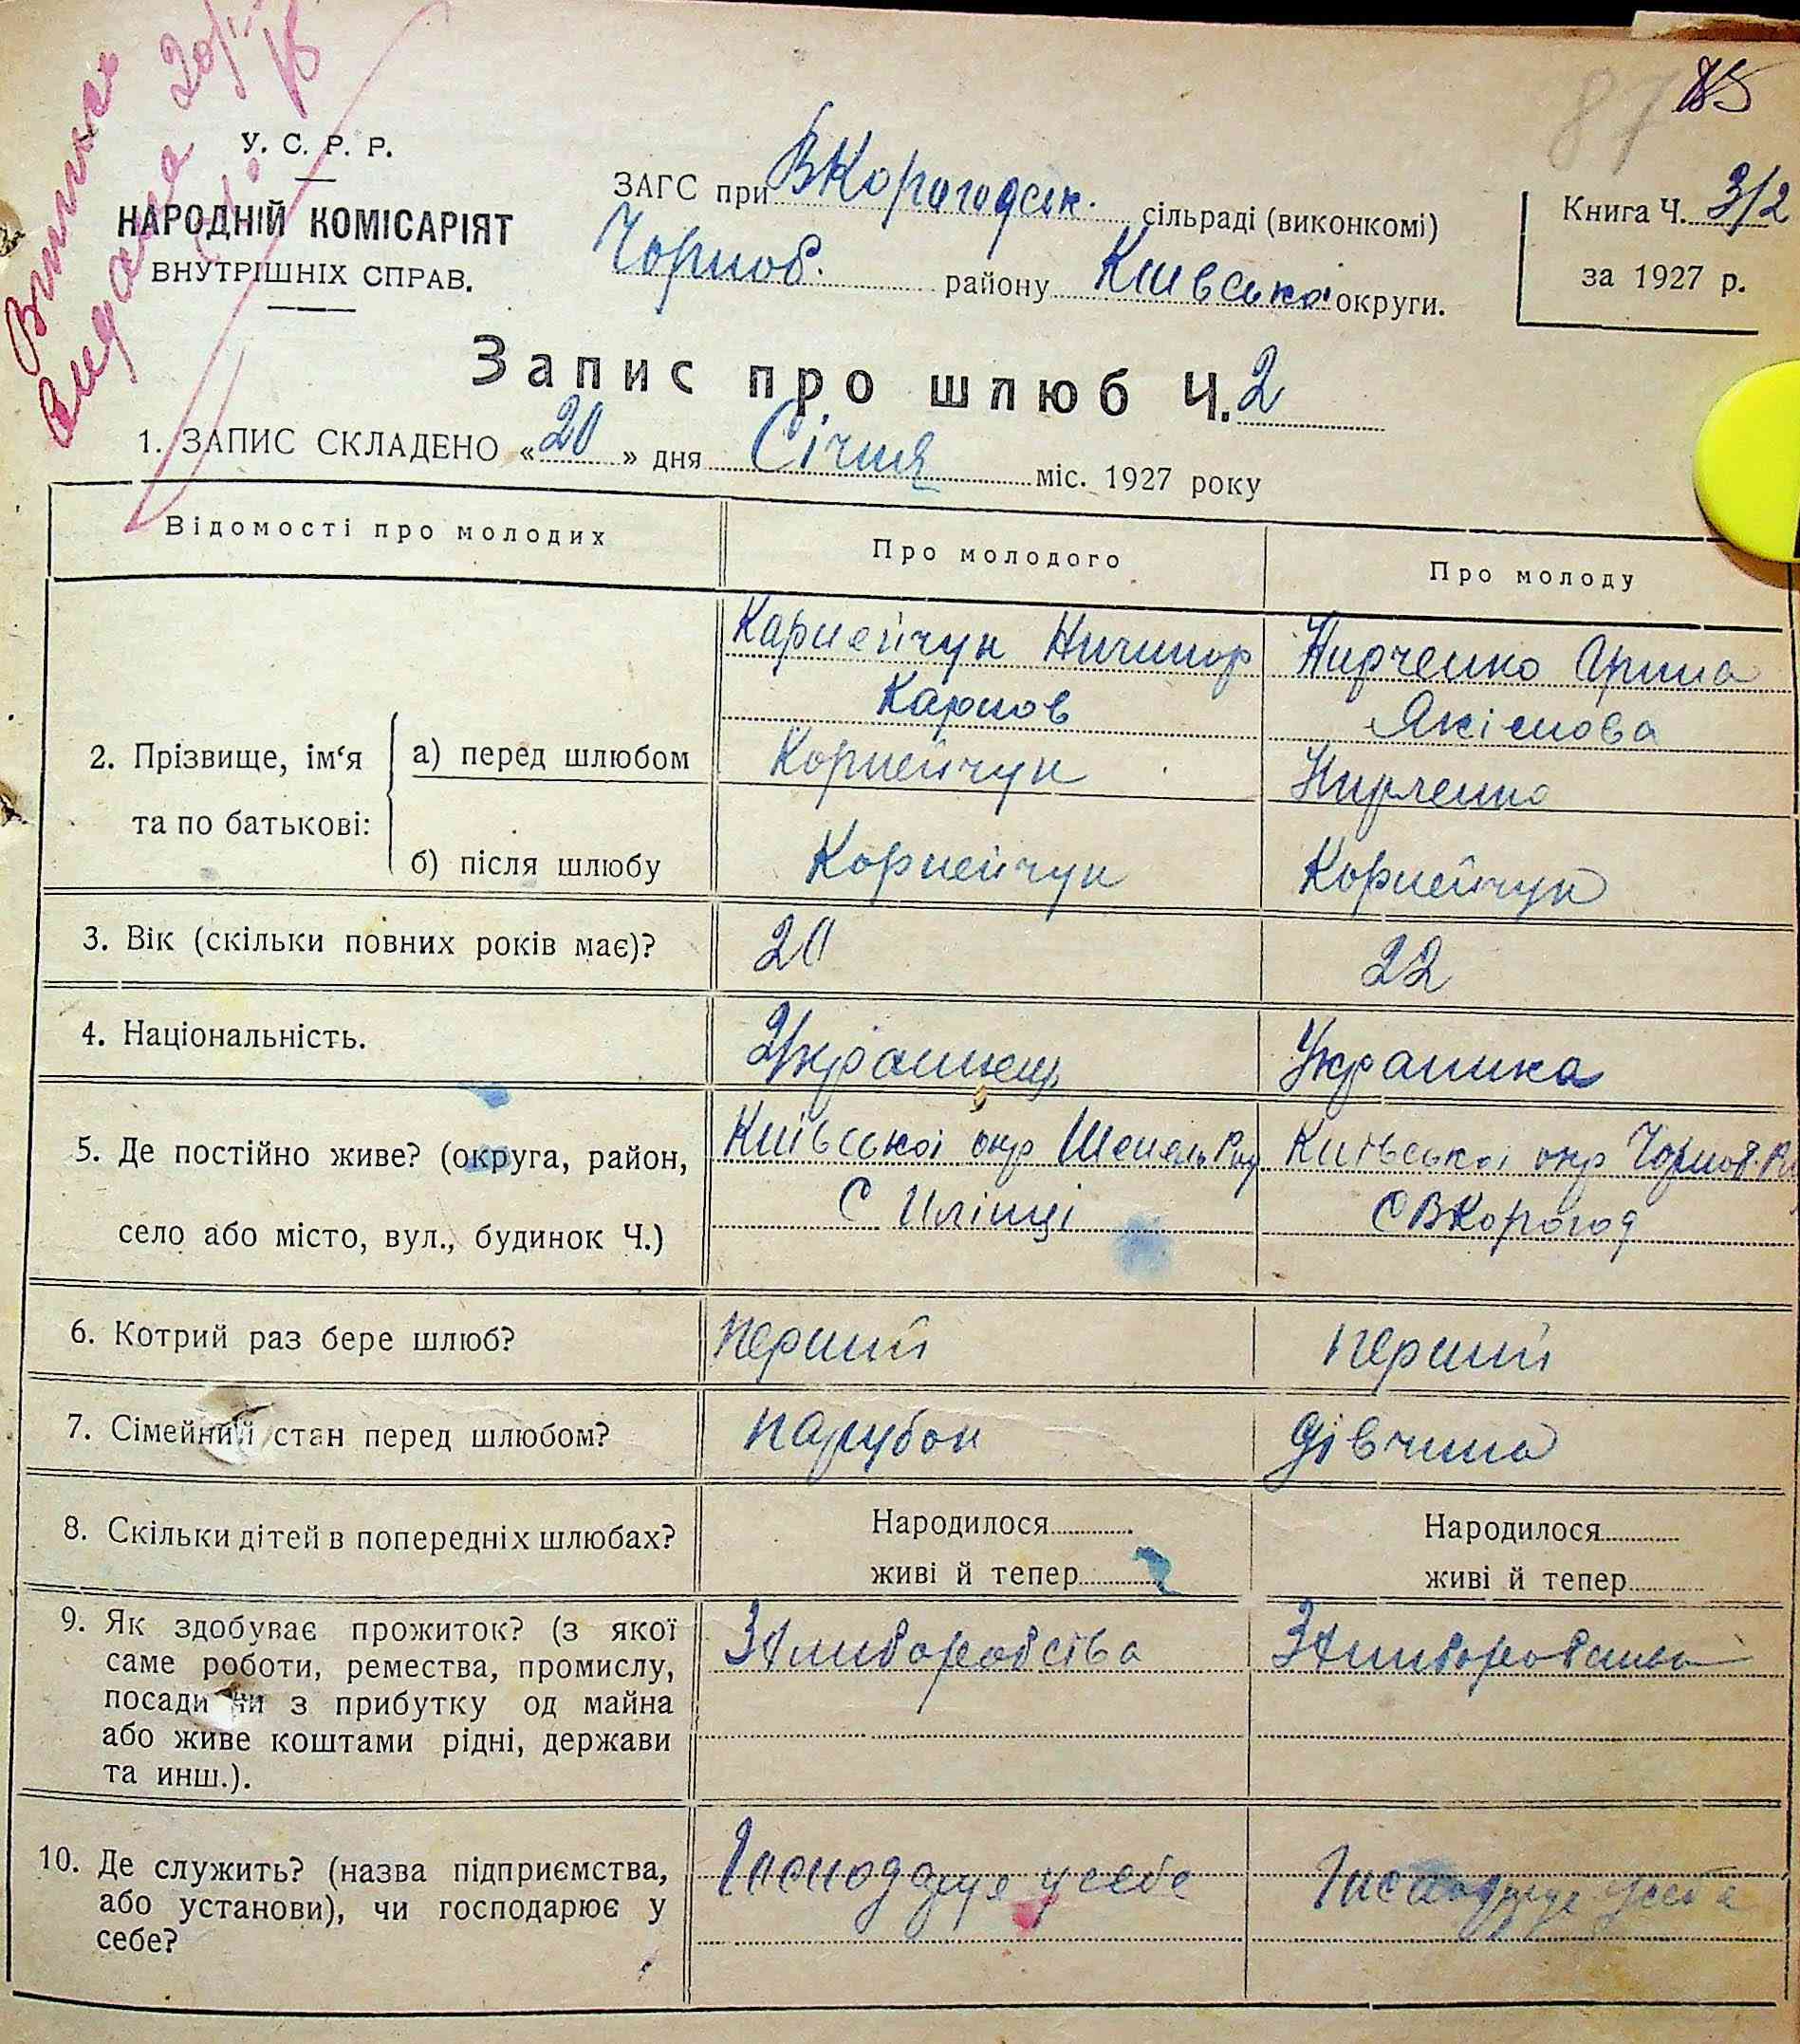 Виписка
видана
У. С. Р. Р.
НАРОДНІЙ КОМІСАРІЯТ
ВНУТРІШНІХ СПРАВ.
87 85
ЗАГС при ВКорогодськ. сільраді (виконкомі)
Чорноб. району Київської округи.
Книга Ч. 3/2
за 1927 р.
Запис про шлюб Ч. 2
1. ЗАПИС СКЛАДЕНО «20» дня Січня міс. 1927 року
Відомості про молодих Про молодого Про молоду
2. Прізвище, ім‘я та по батькові:
Карнейчук Ничипор Кирченко Орина
Карпов Якімова
а) перед шлюбом Корнейчук Кирченко
б) після шлюбу Корнейчук Корнейчук
3. Вік (скільки повних років має)? 20 22
4. Національність. Українец Украинка
5. Де постійно живе? (округа, район, Київської окр Шепель Рну Київської окр Чорноб. Ра
село або місто, вул., будинок Ч.) С Іллінці С ВКорогод
6. Котрий раз бере шлюб? перший перший
7. Сімейний стан перед шлюбом? парубок дівчина
8. Скільки дітей в попередніх шлюбах? Народилося Народилося
живі й тепер живі й тепер
9. Як здобуває прожиток? (з якої
саме роботи, ремества, промислу,
посади чи з прибутку од майна
або живе коштами рідні, держави
та инш.).
З Хлиборобства З Хлиборобства
10. Де служить? (назва підприємства,
або установи), чи господарює у
себе?
Господарує у себе Господарує у себе